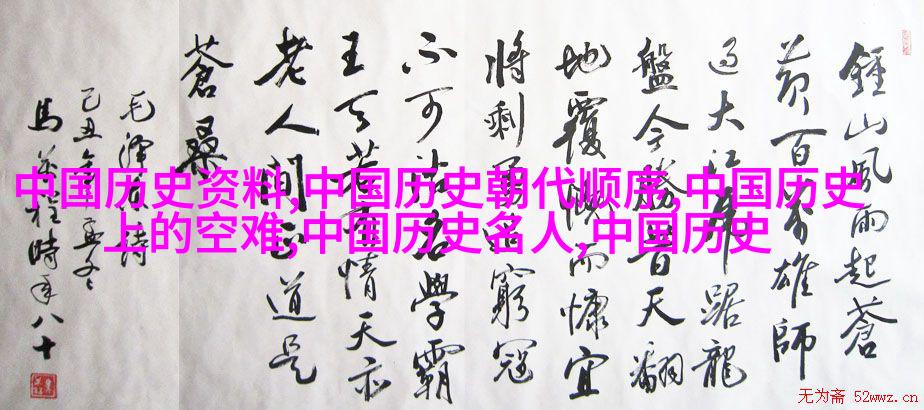 鍾山風雨起蒼
黃百万雄師
過大江虎踞龍
盤今勝昔天翻
地覆慨而慷宜
將剩勇追窮寇
不可沽名學霸
王天若有情天亦
老人間正道是
蒼桑
毛澤东詩
己丑年孟冬
馬程時年八十
中国历史资料,中国历史朝代顺序,中国历史
上的空难,中国历史名人,中国历史
无为斋 52wwz.cn